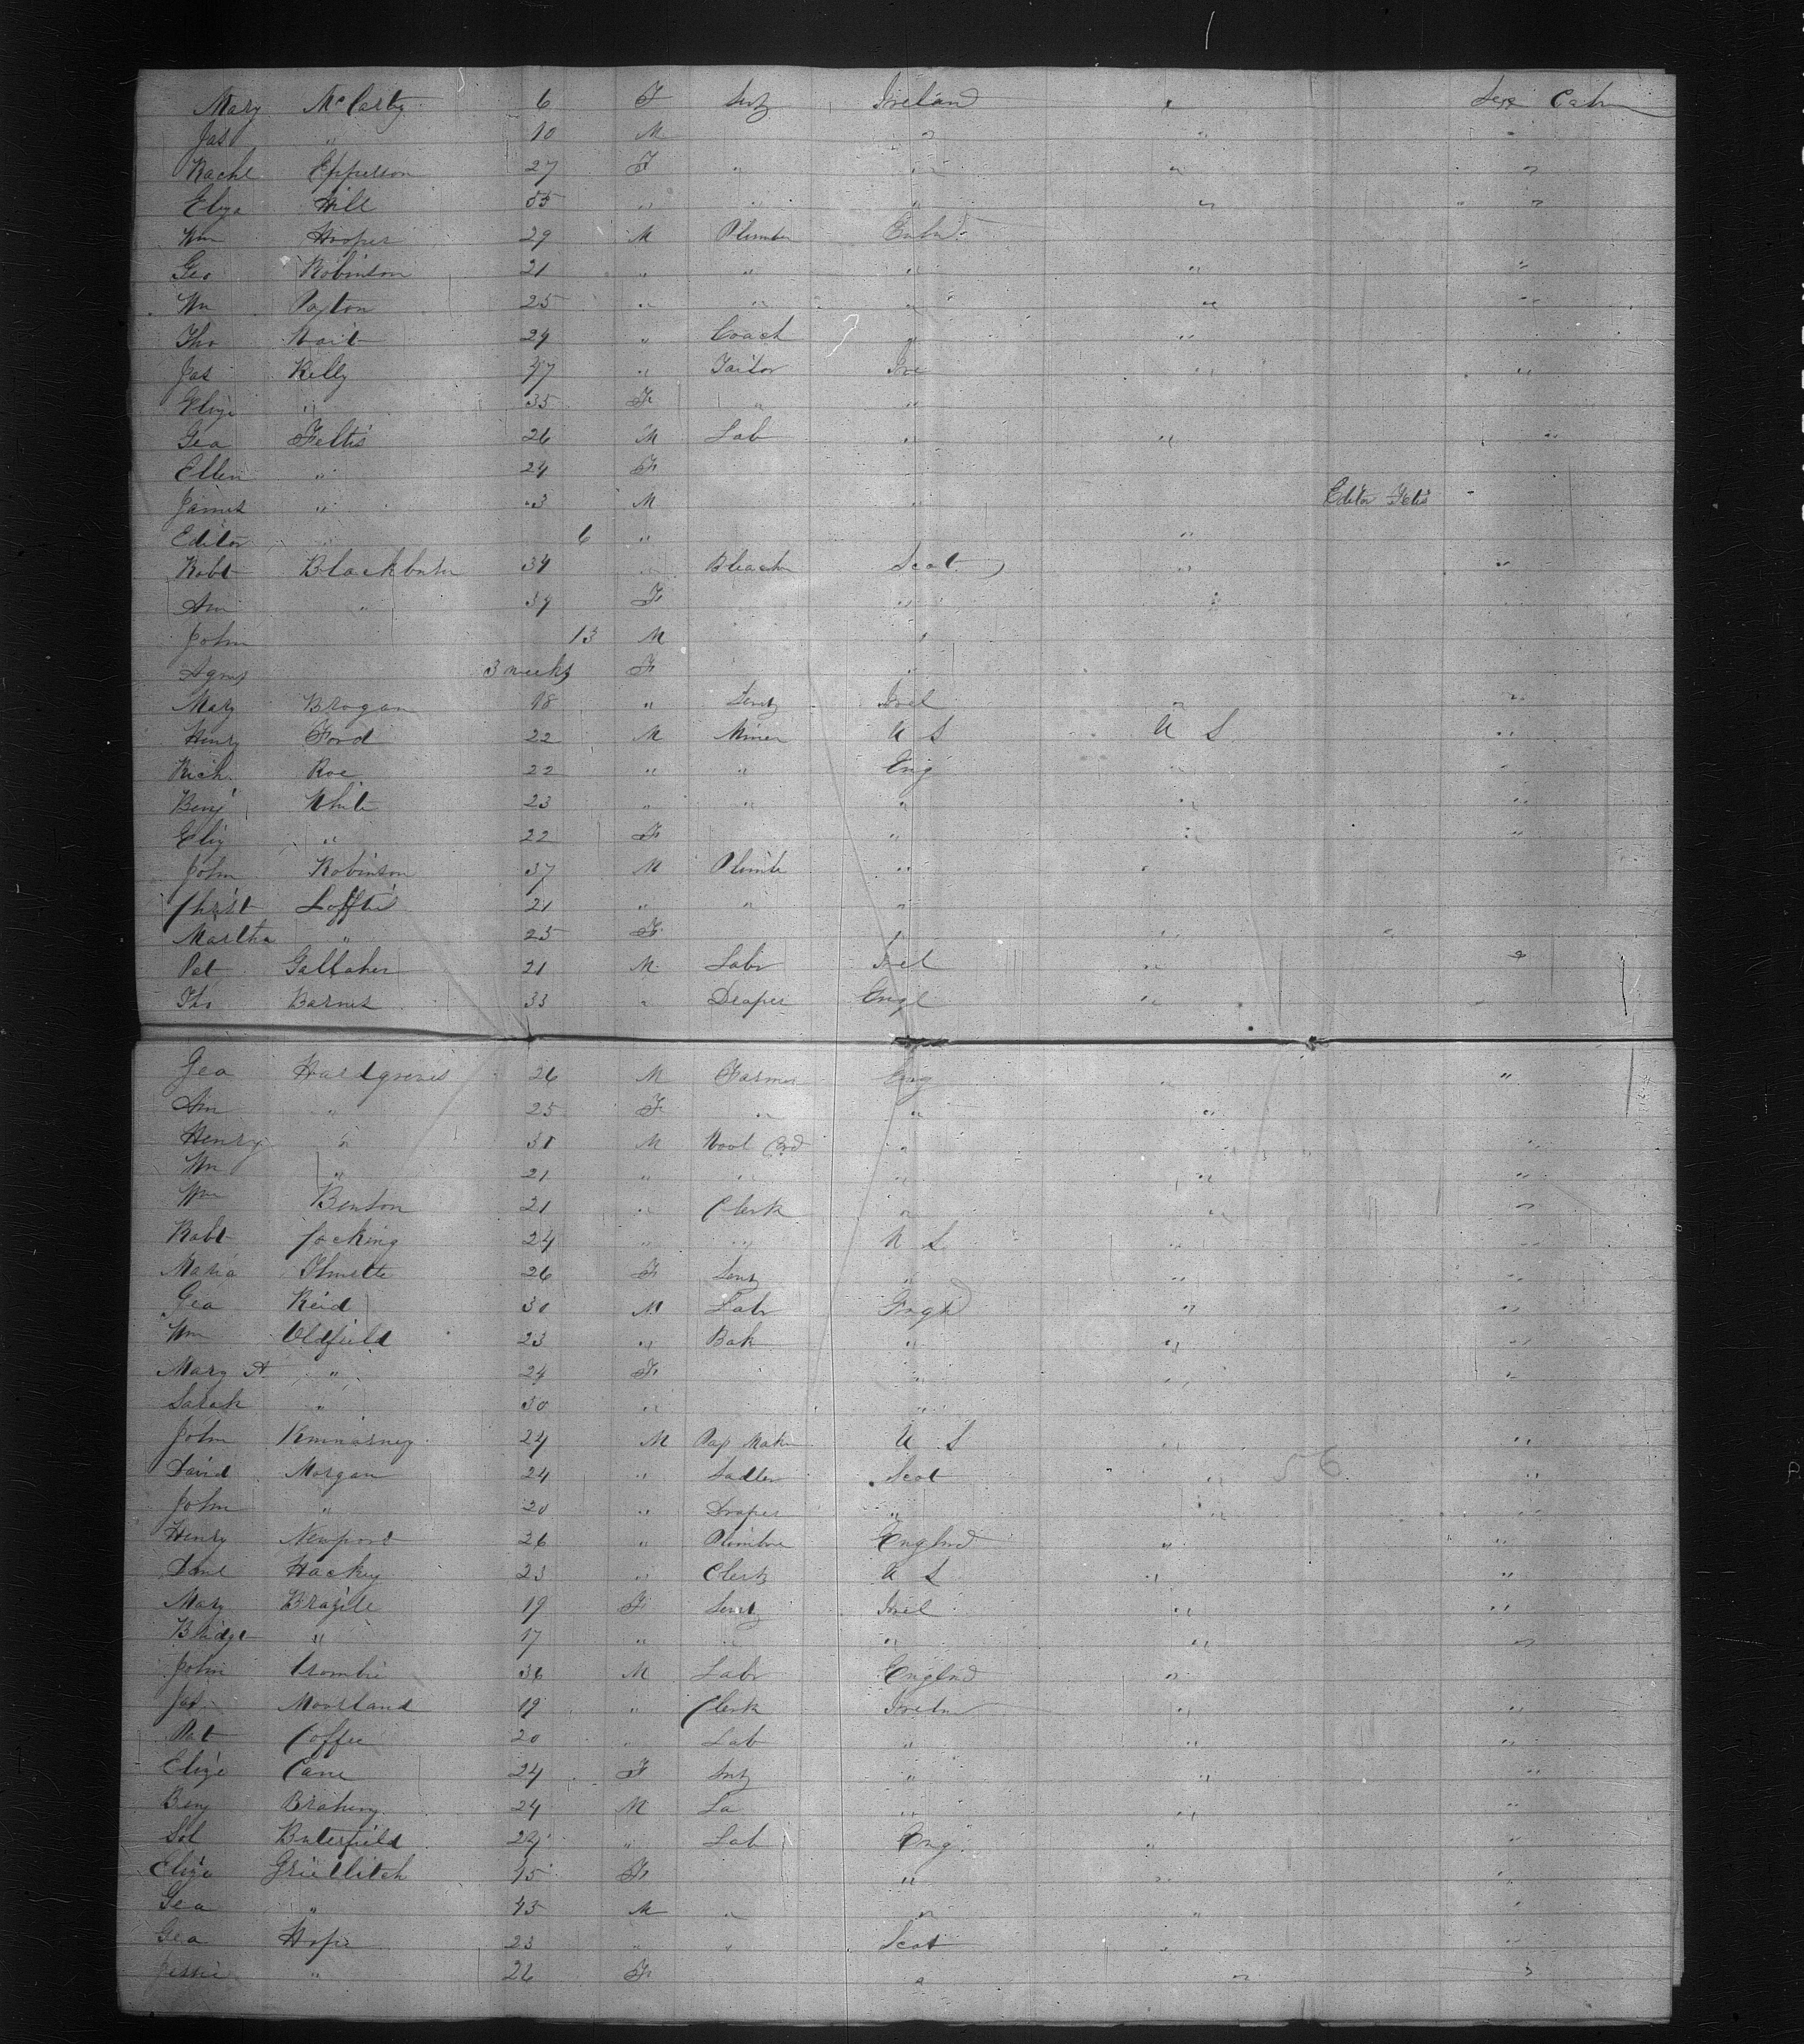 Mary McCarty 6 F Serv Ireland " Cab
Jas " 10 M " " "
Rachl Epperson 27 F " " " " "
Eliza Hill 55 " " " " " "
Wm Hooper 29 M Plumber
Geo Robinson 21 " " " " "
Wm Payton 25 " " " " "
Tho 29 " Coach " "
Jas Kelly 37 " Tailor Ire " "
Eliza " 35 F " "
Geo Feltis 26 M Lab " " "
Ellen " 24 F
James " 3 M " Editor Feltis "
Editor " 6 " "
Robt Blackburn 34 " Bleach Scot " "
Ann " 34 F " "
John 13 M "
Agnes 3 weeks F "
Mary Brogan 18 " Serv Irel " "
Henry Ford 22 M Miner U S U S "
Rich Roe 22 " " Eng " "
Benj White 23 " " " " "
Eliz " 22 F " " "
John Robinson 37 M Plumb " "
Christ Lofftis 21 " " "
Martha " 25 F " " "
Pat Gallaher 21 M Labr Irel " "
Tho Barnes 33 " Draper Engl " "
Geo Hardgreves 26 M Farmer Eng " "
Ann " 25 F " " "
Henry " 31 M Wool " " "
Wm " 21 " " " " "
Wm Benton 21 " Clerk " " "
Robt Jocking 24 " " U S " "
Maria 26 F Serv " " "
Geo Reid 30 M Labr Engd " "
Wm Oldfield 23 " Bak " " "
Mary A " 24 F " " "
Sarah " 30 " "
John Kminarney 24 M Pap Makr U S " "
David Morgan 24 " Sadler Scot " 56 "
John " 20 " Draper " " "
Henry Newport 26 " Plumber Englnd " "
Danl Hackey 23 " Clerk U S " "
Mary Brazile 19 F Serv Irel " "
Bridgt " 17 " " " " "
John Crombie 36 M Labr Englnd "
Jas Moorland 19 " Clerk Ireln " "
Pat Coffee 20 " Lab " " "
Eliza Cane 24 F Srv " " "
Benj 24 M La " " "
Sol Buterfield 29 " Lab Eng " "
Eliza 15 F " " "
Geo " 45 M " " " "
Geo Hope 23 " " Scot " "
Jessie " 26 F " " "